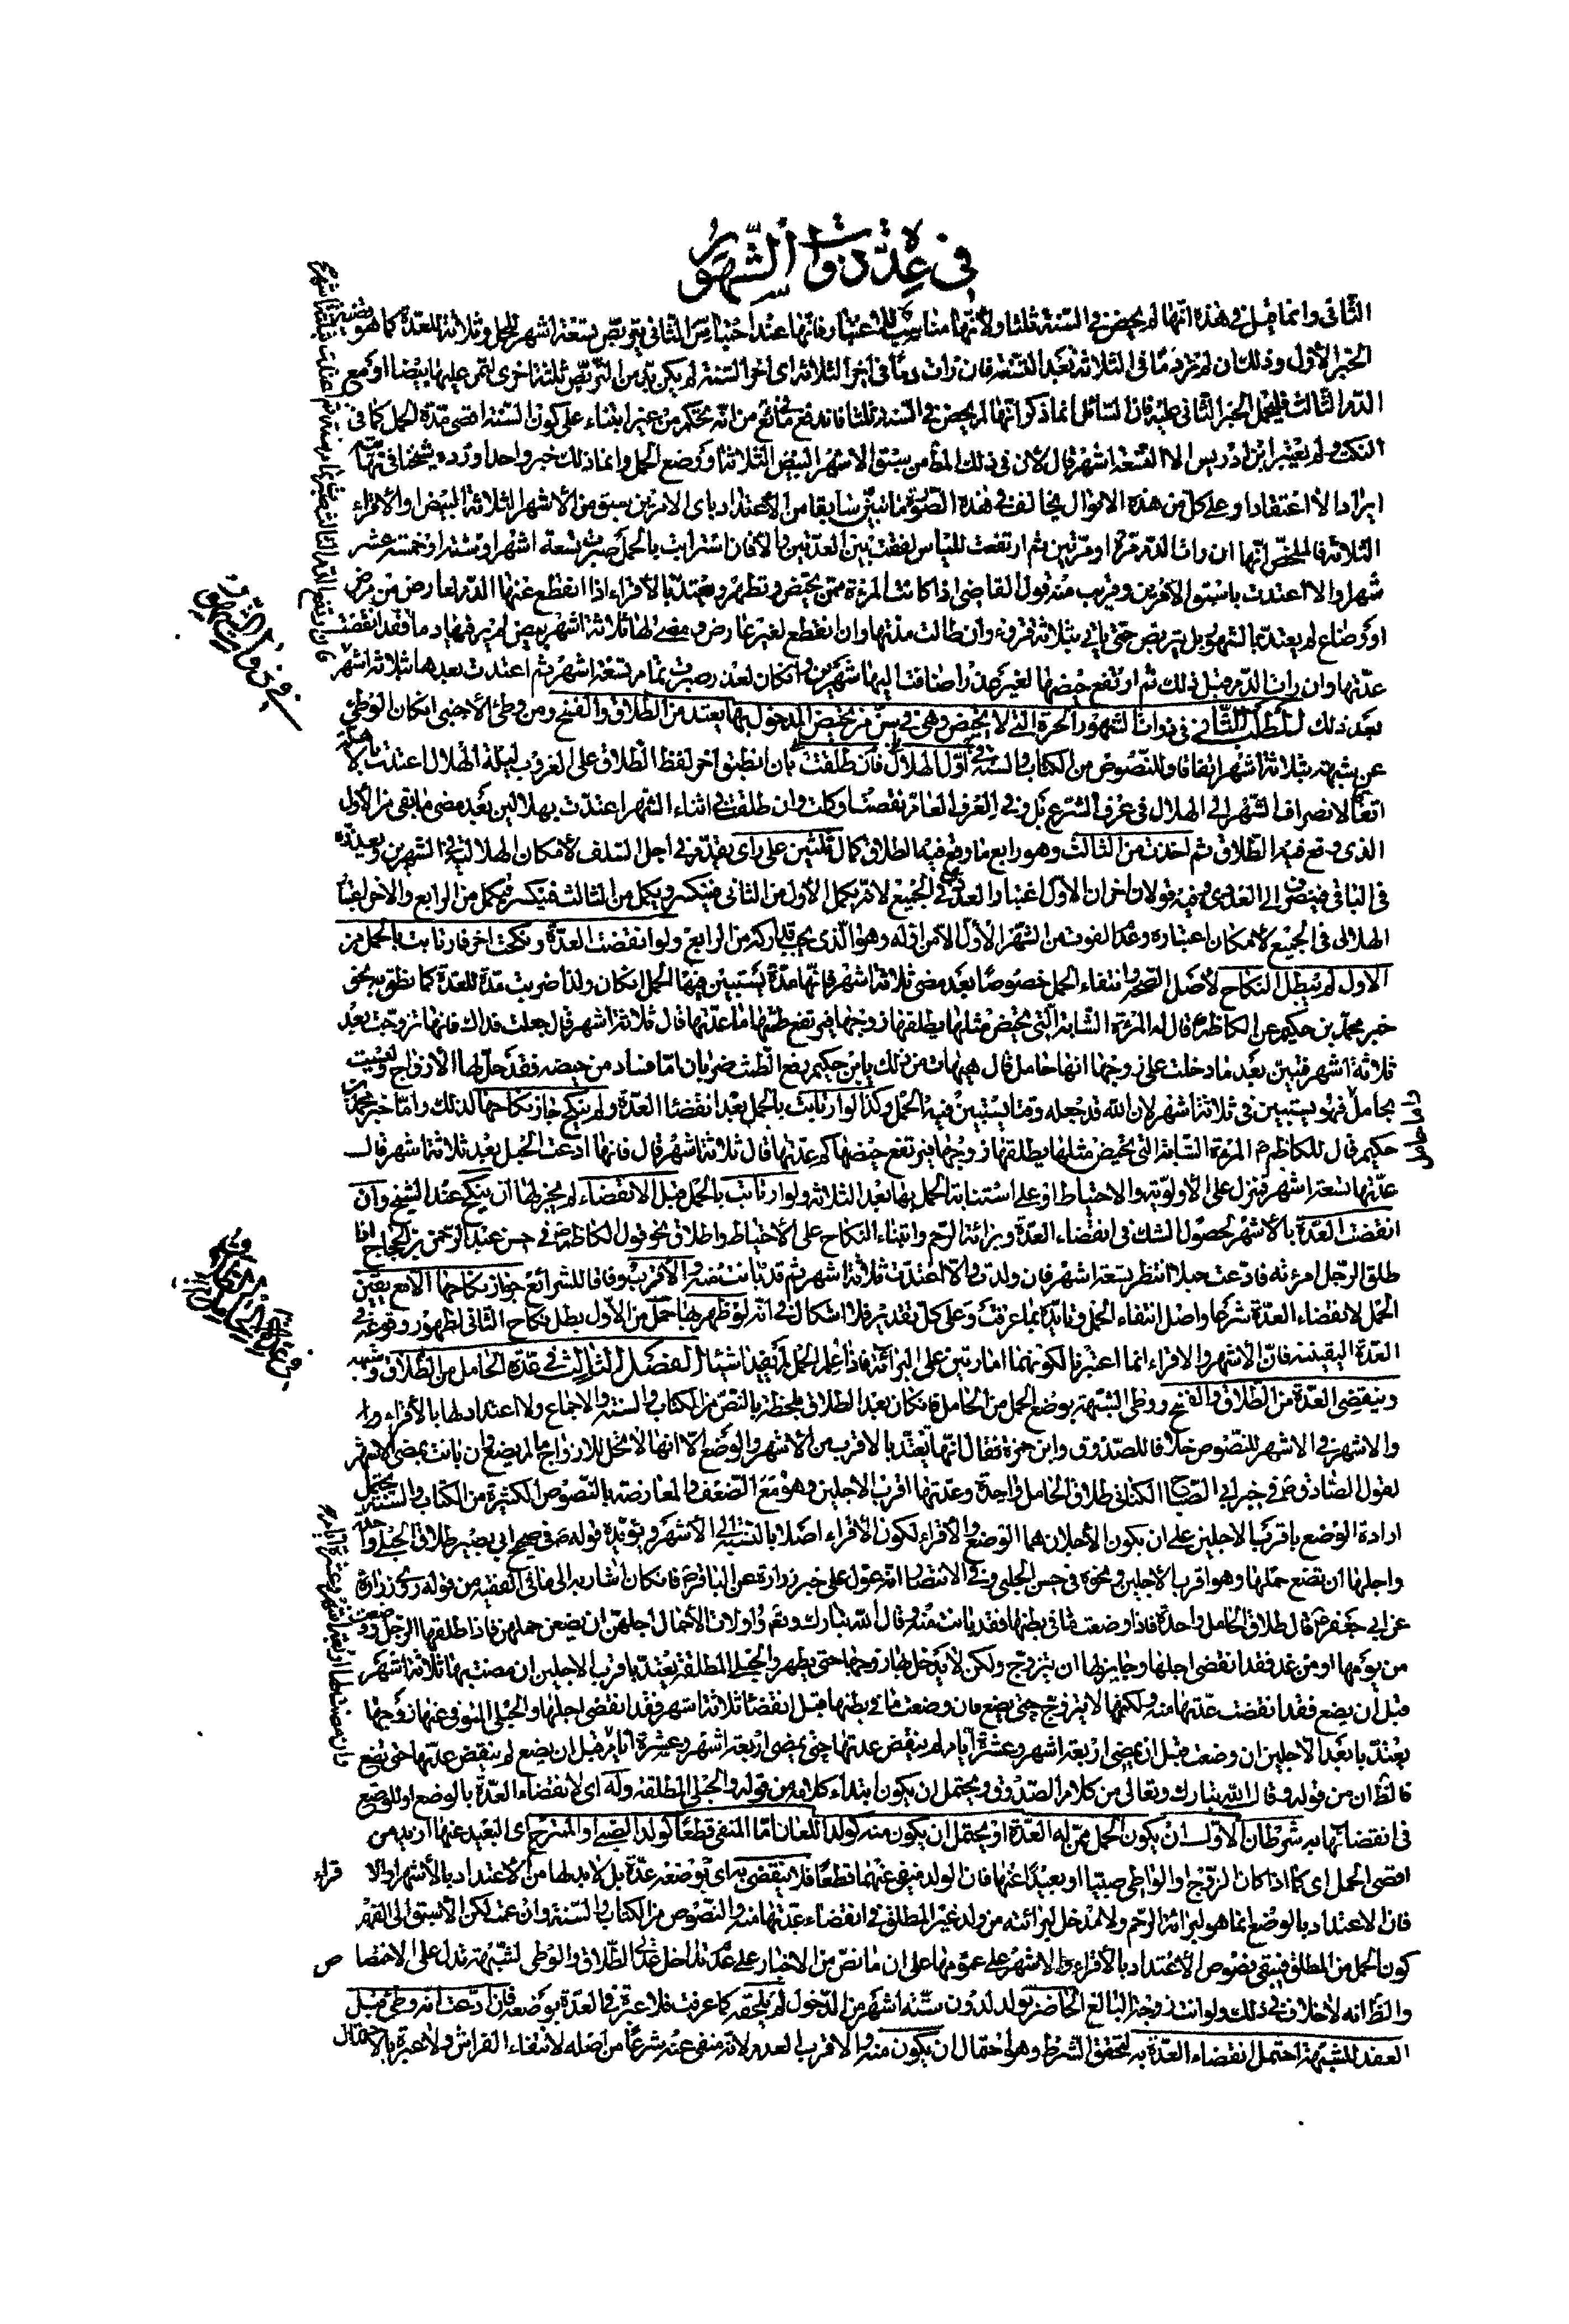 في عدة ذوات الشهور
الثاني وانما قيل في هذه انها لم يحض في السنة ثلثا ولانها مناسب للاعتبار فانها عند احتباس الثاني يتربص بتسعة اشهر للحمل وثلاثة للعدة كما هو قضية
الخبر الاول وذلك ان لم تر دما في الثلاثة بعد التسعة فان رات دما في اخر الثلاثة اى اخر السنة لم يكن بد من التربص ثلثة اخرى لتمر عليها بيضا او مع
الدم الثالث فليحمل الخبر الثاني عليه فان السائل انما ذكر انها لم يحض في السنة ثلثا فاندفع ما من انه تحكم من غير ابتناء على كون السنة اقصى مدة الحمل كما في
النكت ولم يعتبر ابن ادريس الا التسعة اشهر قال لان في ذلك من سبق الاشهر البيض الثلاثة او وضع الحمل وانما ذلك خبر واحد اورده شيخنا في نهايته
ايرادا لا اعتقادا وعلى كل من هذه الاقوال يخالف في هذه الصورة ما تبين سابقا من الاعتداد باى الامرين سبق من الاشهر الثلاثة البيض والاقراء
الثلاثة فالملخص انها ان رات الدم مرة او مرتين ثم ارتفعت للياس لفقت بين العدتين والا فان استرابت بالحمل صبرت تسعة اشهر او سنة او خمسة عشر
شهرا والا اعتدت باسبق الامرين وقريب منه قول القاضي اذا كانت المرءة ممن يحيض وتطهر وتعتد بالاقراء اذا انقطع عنها الدم لعارض من مرض
او رضاع لم يعتد بالشهور بل يتربص حتى ياتي بثلاثة قروء وان طالت مدتها وان انقطع لغير عارض ومضى لها ثلاثة اشهر بيض لم ير فيها دما فقد انقضت
عدتها وان رات الدم قبل ذلك ثم ارتفع حيضها لغير عذر اضافت اليها شهرين وان كان لعذر صبرت تمام تسعة اشهر ثم اعتدت بعدها بثلاثة اشهر
بعد ذلك المطلب الثاني في ذوات الشهور الحرة التي لا يحيض وهي في سن من يحيض المدخول بها يعتد من الطلاق والفسخ ومن وطئ الاجنبي ان كان الوطئ
عن شبهة بثلاثة اشهر اتفاقا وللنصوص من الكتاب والسنة في اول الهلال فان طلقت بان انطبق اخر لفظ الطلاق على الغروب ليلة الهلال اعتدت بالاهلة
اتفاقا لانصراف الشهر الى الهلال في عرف الشرع بل وفي العرف العام نقصت او كملت وان طلقت في اثناء الشهر اعتدت بهلالين بعد مضى ما بقى من الاول
الذي وقع فيه الطلاق ثم اخذت من الثالث وهو رابع ما وقع فيه الطلاق كمال ثلثين على راى تقدم في اجل السلف لامكان الهلالية في الشهرين وتعذره
في الباقي فينصرف الى العددى وفيه قولان اخران الاول اعتبار العددى في الجميع لانه يكمل الاول من الثاني فينكسر ويكمل من الثالث فينكسر فيكمل من الرابع والاخر اعتبار
الهلالى في الجميع لامكان اعتباره وعد الفوت من الشهر الاول الامر اقله وهو الذي يجب تداركه من الرابع ولو انقضت العدة ونكحت اخر فارتابت بالحمل من
الاول لم يبطل النكاح لاصل الصحة وانتفاء الحمل خصوصا بعد مضى ثلاثة اشهر فانها مدة يستبين فيها الحمل ان كان ولذا ضربت مدة للعدة كما نطق به نحو
خبر محمد بن حكيم عن الكاظم ع قال له المرءة الشابة التي يحيض مثلها يطلقها زوجها فيرتفع طمثها ما عدتها قال ثلاثة اشهر قال جعلت فداك فانها تزوجت بعد
ثلاثة اشهر فتبين بعد ما دخلت على زوجها انها حامل قال هيهات من ذلك يا بن حكيم رفع الطمث ضربان اما فساد من حيضه فقد حل لها الازواج وليست
بحامل فهو يستبين في ثلاثة اشهر لان الله قد جعله وقتا يستبين فيه الحمل وكذا لو ارتابت بالحمل بعد انقضاء العدة ولم ينكح جاز نكاحها لذلك واما خبر محمد بن
حكيم قال للكاظم ع المرءة الشابة التي تحيض مثلها يطلقها زوجها فيرتفع حيضها كم عدتها قال ثلاثة اشهر قال فانها ادعت الحبل بعد ثلاثة اشهر قال
عدتها تسعة اشهر فينزل على الاولوية والاحتياط او على استنابة الحمل بها بعد الثلاثة ولو ارتابت بالحمل قبل الانقضاء لم يجز لها ان ينكح عند الشيخ وان
انقضت العدة بالاشهر لحصول الشك في انقضاء العدة وبرائة الرحم وابتناء النكاح على الاحتياط واطلاق نحو قول الكاظم ع في حسن عبد الرحمن بن الحجاج اذا
طلق الرجل امرءته فادعت حبلا انتظر تسعة اشهر فان ولدت والا اعتدت ثلاثة اشهر ثم قد بانت منه والاقرب وفاقا للشرائع جواز نكاحها الا مع يقين
الحمل لانقضاء العدة شرعا واصل انتفاء الحمل وتايده بما عرفت وعلى كل تقدير فلا اشكال في انه لو ظهر بها حمل من الاول بطل نكاح الثاني لظهور وقوعه في
العدة اليقينية فان الاشهر والاقراء انما اعتبرا لكونهما امارتين على البرائة فاذا علم الحمل لم يفيدا شيئا الفصل الثالث في عدة الحامل من الطلاق وشبهه
وينقضى العدة من الطلاق والفسخ ووطى الشبهة بوضع الحمل من الحامل وان كان بعد الطلاق بلحظة بالنص من الكتاب والسنة والاجماع ولا اعتداد لها بالاقراء
والاشهر في الاشهر للنصوص خلافا للصدوق وابن حمزة فقالا انها تعتد بالاقرب من الاشهر والوضع الا انها لا تحل للازواج ما لم يضع وان بانت بمضى الاشهر
لقول الصادق ع في خبر ابي الصباح الكناني طلاق الحامل واحدة وعدتها اقرب الاجلين وهو مع الضعف والمعارضة بالنصوص الكثيرة من الكتاب والسنة يحتمل
ارادة الوضع باقرب الاجلين على ان يكون الاجلان هما الوضع والاقراء لكون الاقراء اصلا بالنسبة الى الاشهر ويؤيده قوله ع في صحيح ابي بصير طلاق الحبلى واحدة
واجلها ان تضع حملها وهو اقرب الاجلين ونحوه في حسن الحلبي وفي الانتصار انه عول على خبر زرارة عن الباقر ع فان كان اشار به الى ما في الفقيه من قوله روى زرارة
عن ابي جعفر ع قال طلاق الحامل واحدة فاذا وضعت ما في بطنها فقد بانت منه وقال الله تبارك وتعالى واولات الاحمال اجلهن ان يضعن حملهن فاذا طلقها الرجل ووضعت
من يومها او من غد فقد انقضى اجلها وجايز لها ان يتزوج ولكن لا يدخل بها زوجها حتى يطهر والحبلى المطلقة يعتد باقرب الاجلين ان مضت بها ثلاثة اشهر
قبل ان يضع فقد انقضت عدتها منه ولكنها لا يتزوج حتى يضع فان وضعت ما في بطنها قبل انقضاء ثلاثة اشهر فقد انقضى اجلها والحبلى المتوفى عنها زوجها
يعتد بابعد الاجلين ان وضعت قبل ان يمضى اربعة اشهر وعشرة ايام لم ينقض عدتها حتى يمضى اربعة اشهر وعشرة ايام قبل ان يضع لم ينقض عدتها حتى تضع
فالظ ان من قوله وقال الله تبارك وتعالى من كلام الصدوق ويحتمل ان يكون ابتداء كلامه من قوله والحبلى المطلقة وله اى لانقضاء العدة بالوضع او للوضع
في انقضائها به شرطان الاول ان يكون الحمل ممن له العدة او يحتمل ان يكون منه كولد اللعان اما المنفى قطعا كولد الصبي او المنزح اى البعيد عنها ازيد من
اقصى الحمل اى كما اذا كان الزوج او الواطى صبيا او بعيدا عنها فان الولد منفى عنهما قطعا فلا ينقضى به اى بوضعه عدة بل لا بد لها من الاعتداد بالاشهر او الاقراء
فان الاعتداد بالوضع انما هو لبرائة الرحم ولا مدخل لبرائته من ولد غير المطلق في انقضاء عدتها منه والنصوص من الكتاب والسنة وان عمت لكن الاسبق الى الفهم
كون الحمل من المطلق فيبقى نصوص الاعتداد بالاقراء والاشهر على عمومها على ان ما نص من الاخبار على عدم تداخل عدتى الطلاق والوطى لشبهة تدل على الاختصاص
والظ انه لا خلاف في ذلك ولو اتت زوجة البالغ الحاضر بولد لدون ستة اشهر من الدخول لم يلحقه كما عرفت فلا عبرة في العدة بوضعه فان ادعت انه وطئ قبل
العقد للشبهة احتمل انقضاء العدة به لتحقق الشرط وهو احتمال ان يكون منه والاقرب العدم لانه منفى عنه شرعا من اصله لانتفاء الفراش ولا عبرة بالاحتمال
في ذوات الشهور
في عدة الحامل من الطلاق وغيره
فان مضت لها اربعة اشهر وعشرة ايام